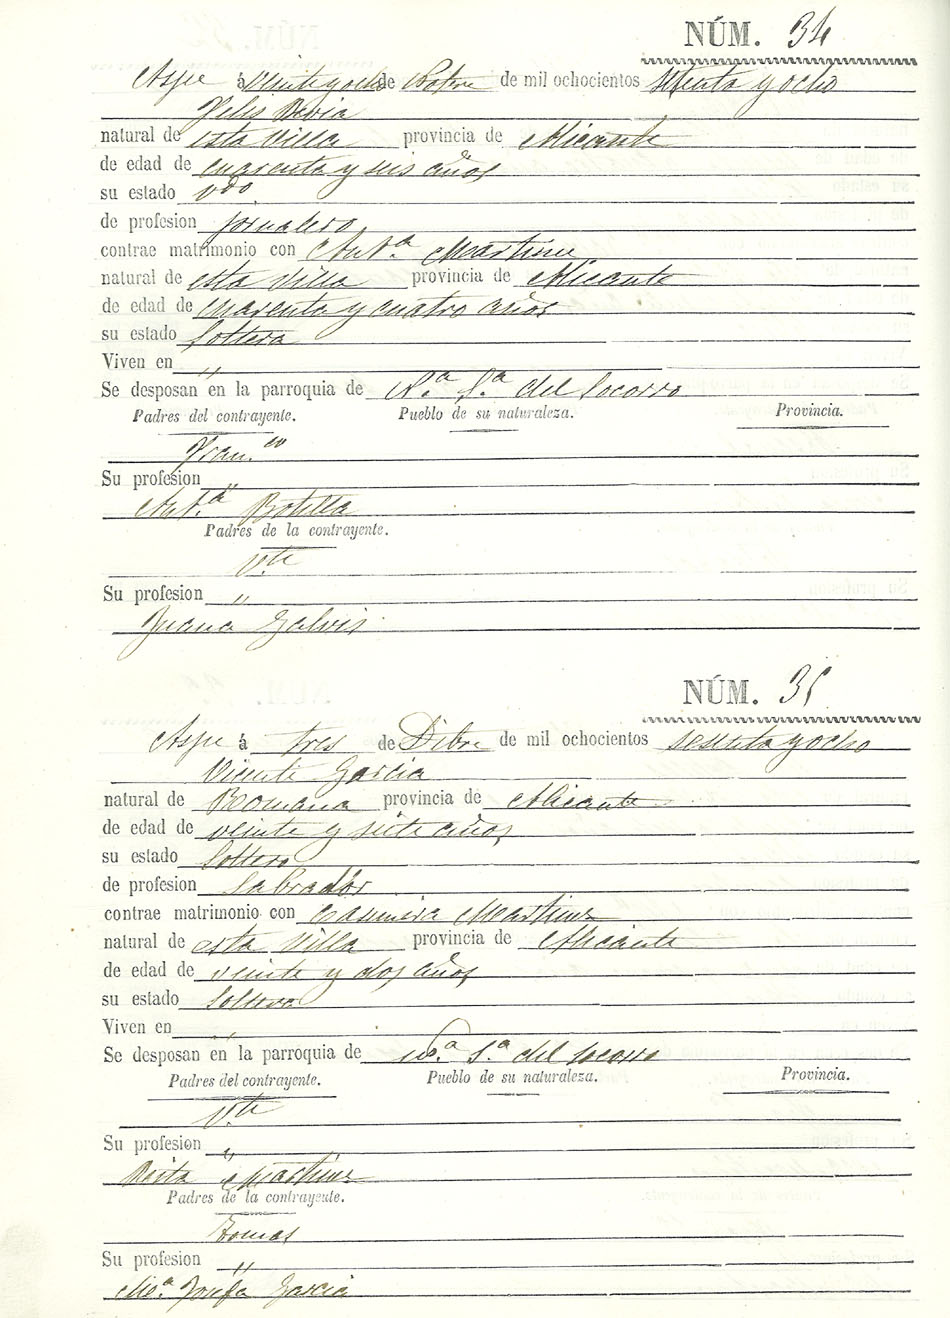 NÚM. 34
Aspe á Veinte y ocho de de mil ochocientos setenta y ocho
natural de esta Villa provincia de Alicante
de edad de cuarenta y seis años
su estado Vdo
de profesion jornalero
contrae matrimonio con Ant.ª Martinez
natural de esta Villa provincia de Alicante
de edad de cuarenta y cuatro años
su estado Soltera
Viven en ,,
Se desposan en la parroquia de N.ª S.ª del Socorro
Padres del contrayente. Pueblo de su naturaleza. Provincia.
Fran.co
Su profesion ,,
Ant.ª Botella
Padres de la contrayente.
Vte
Su profesion ,,
Juana Galvis
NÚM. 35
Aspe á tres de Dibre de mil ochocientos sesenta y ocho
Vicente Garcia
natural de Romana provincia de Alicante
de edad de veinte y siete años
su estado Soltero
de profesion Labrador
contrae matrimonio con Casimira Martinez
natural de esta Villa provincia de Alicante
de edad de veinte y dos años
su estado Soltera
Viven en ,,
Se desposan en la parroquia de N.ª S.ª del Socorro
Padres del contrayente. Pueblo de su naturaleza. Provincia.
Vte
Su profesion ,,
Rita Martinez
Padres de la contrayente.
Tomas
Su profesion ,,
M.ª Josefa Garcia